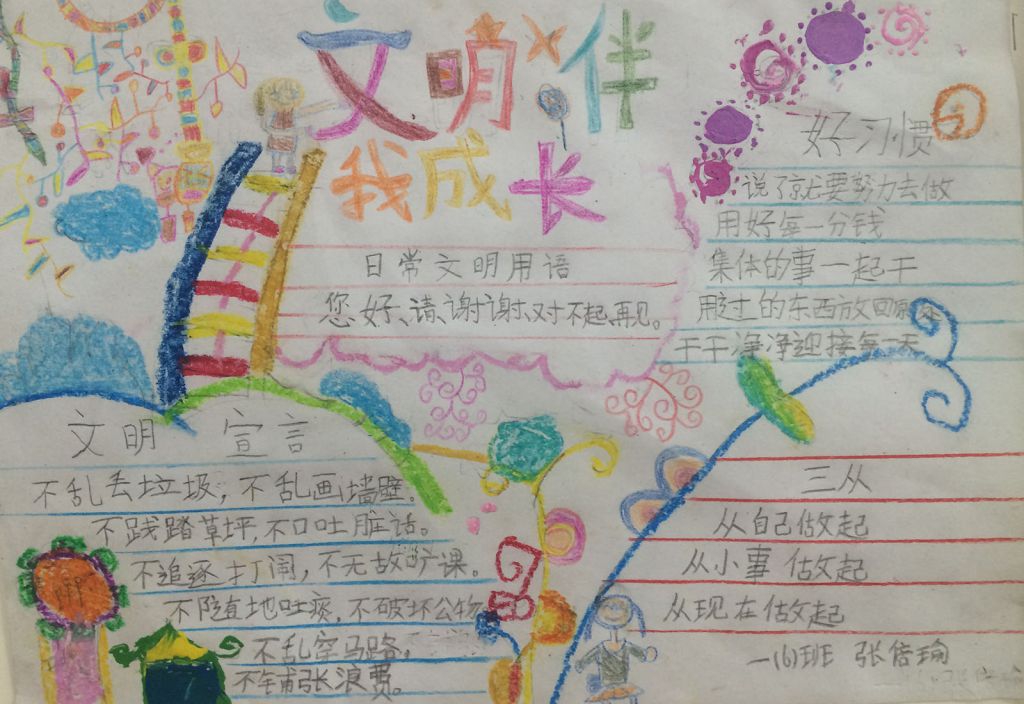 文明伴
我成长
日常文明用语
您好、请、谢谢、对不起、再见。
好习惯
说了就要努力去做
用好每一分钱
集体的事一起干
用过的东西放回原
干干净净迎接每一天
文明宣言
不乱丢垃圾，不乱画墙壁。
不践踏草坪，不口吐脏话。
不追逐打闹，不无故旷课。
不随地吐痰，不破坏公物
不乱穿马路，
不铺张浪费。
三从
从自己做起
从小事做起
从现在做起
一(6)班 张信瑜